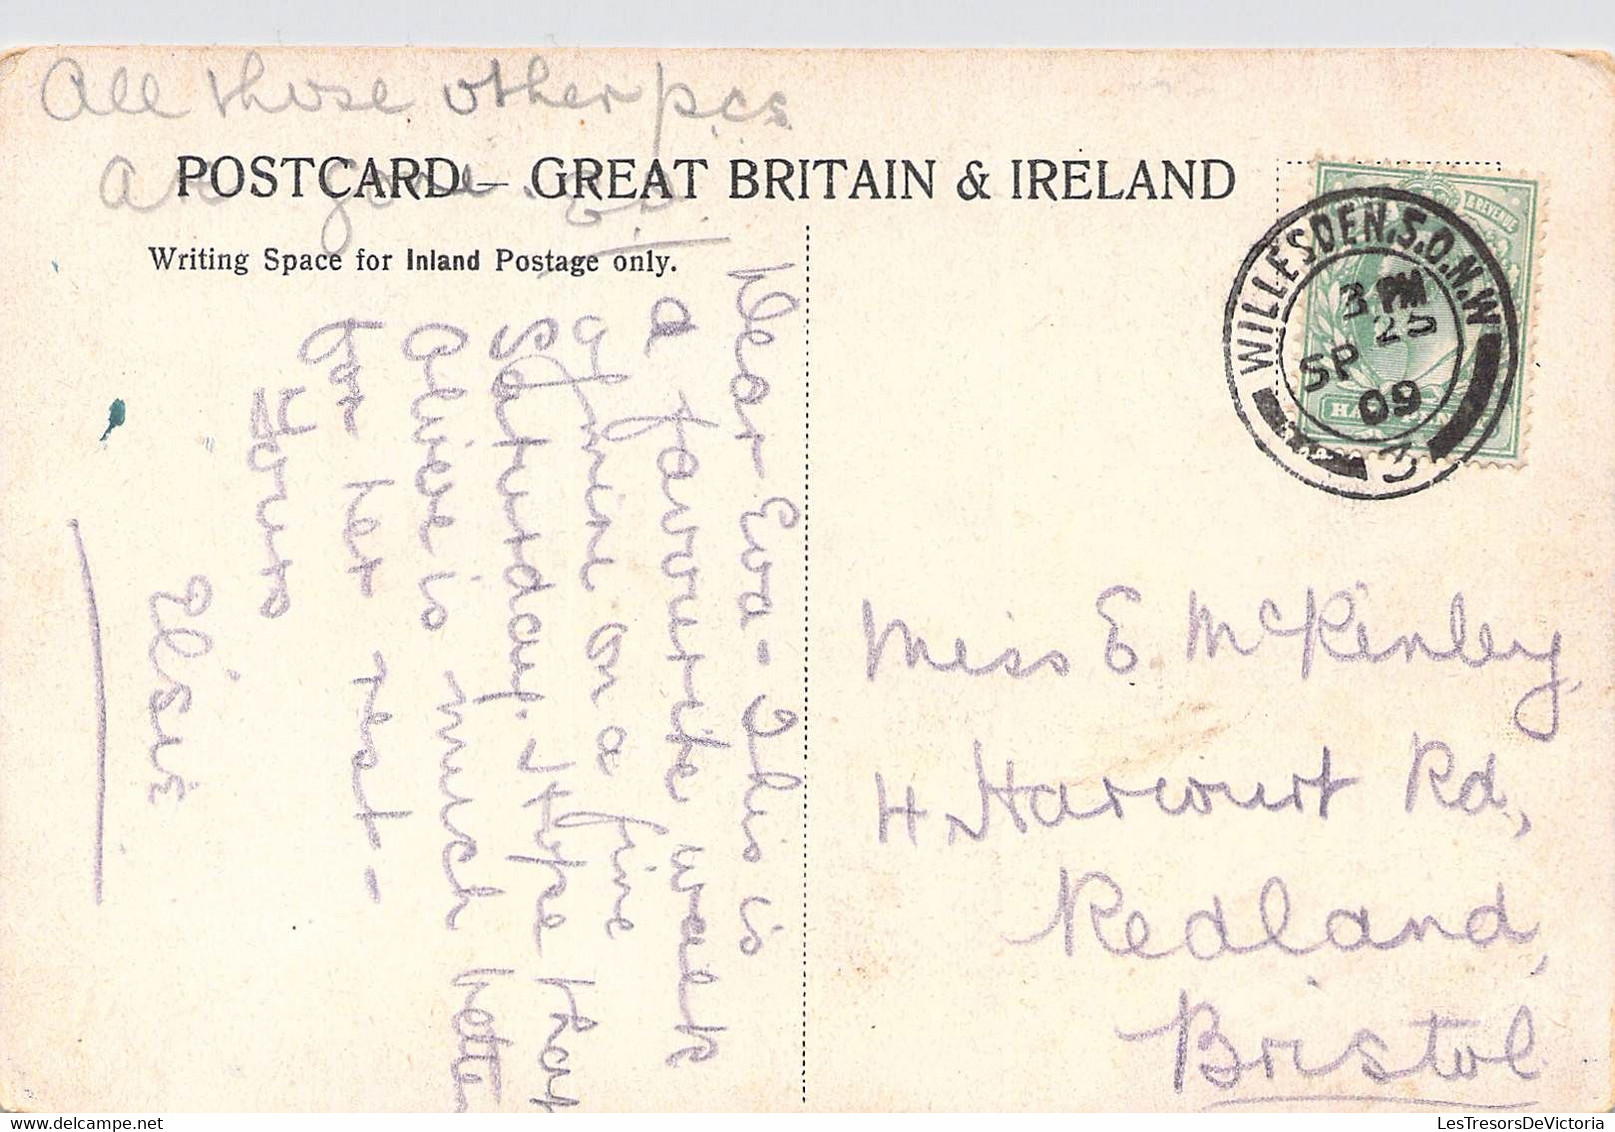 All those other p.c.s.
are gone.
POSTCARD — GREAT BRITAIN & IRELAND
Writing Space for Inland Postage only.
Dear Eva - This is
a favourite walk
of mine on a fine
Saturday. Hope that
Alice is much better
for her rest -
Yours
Elsie
& REVENUE
WILLESDEN.S.O.N.W
3 PM
SP
09
Miss E McKinley
4. Harcourt Rd,
Redland,
Bristol
LesTresorsDeVictoria